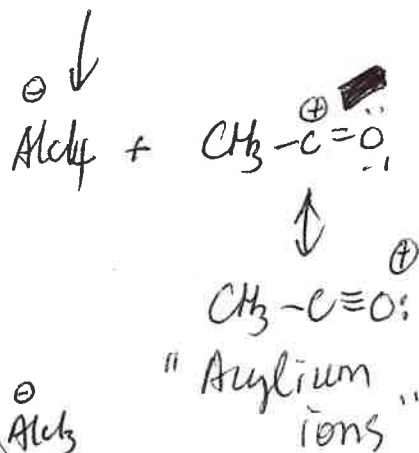 ⊖ ⊕
AlCl4 + CH3-C=O
⊕
CH3-C≡O:
"Acylium
ions"
⊖
AlCl3